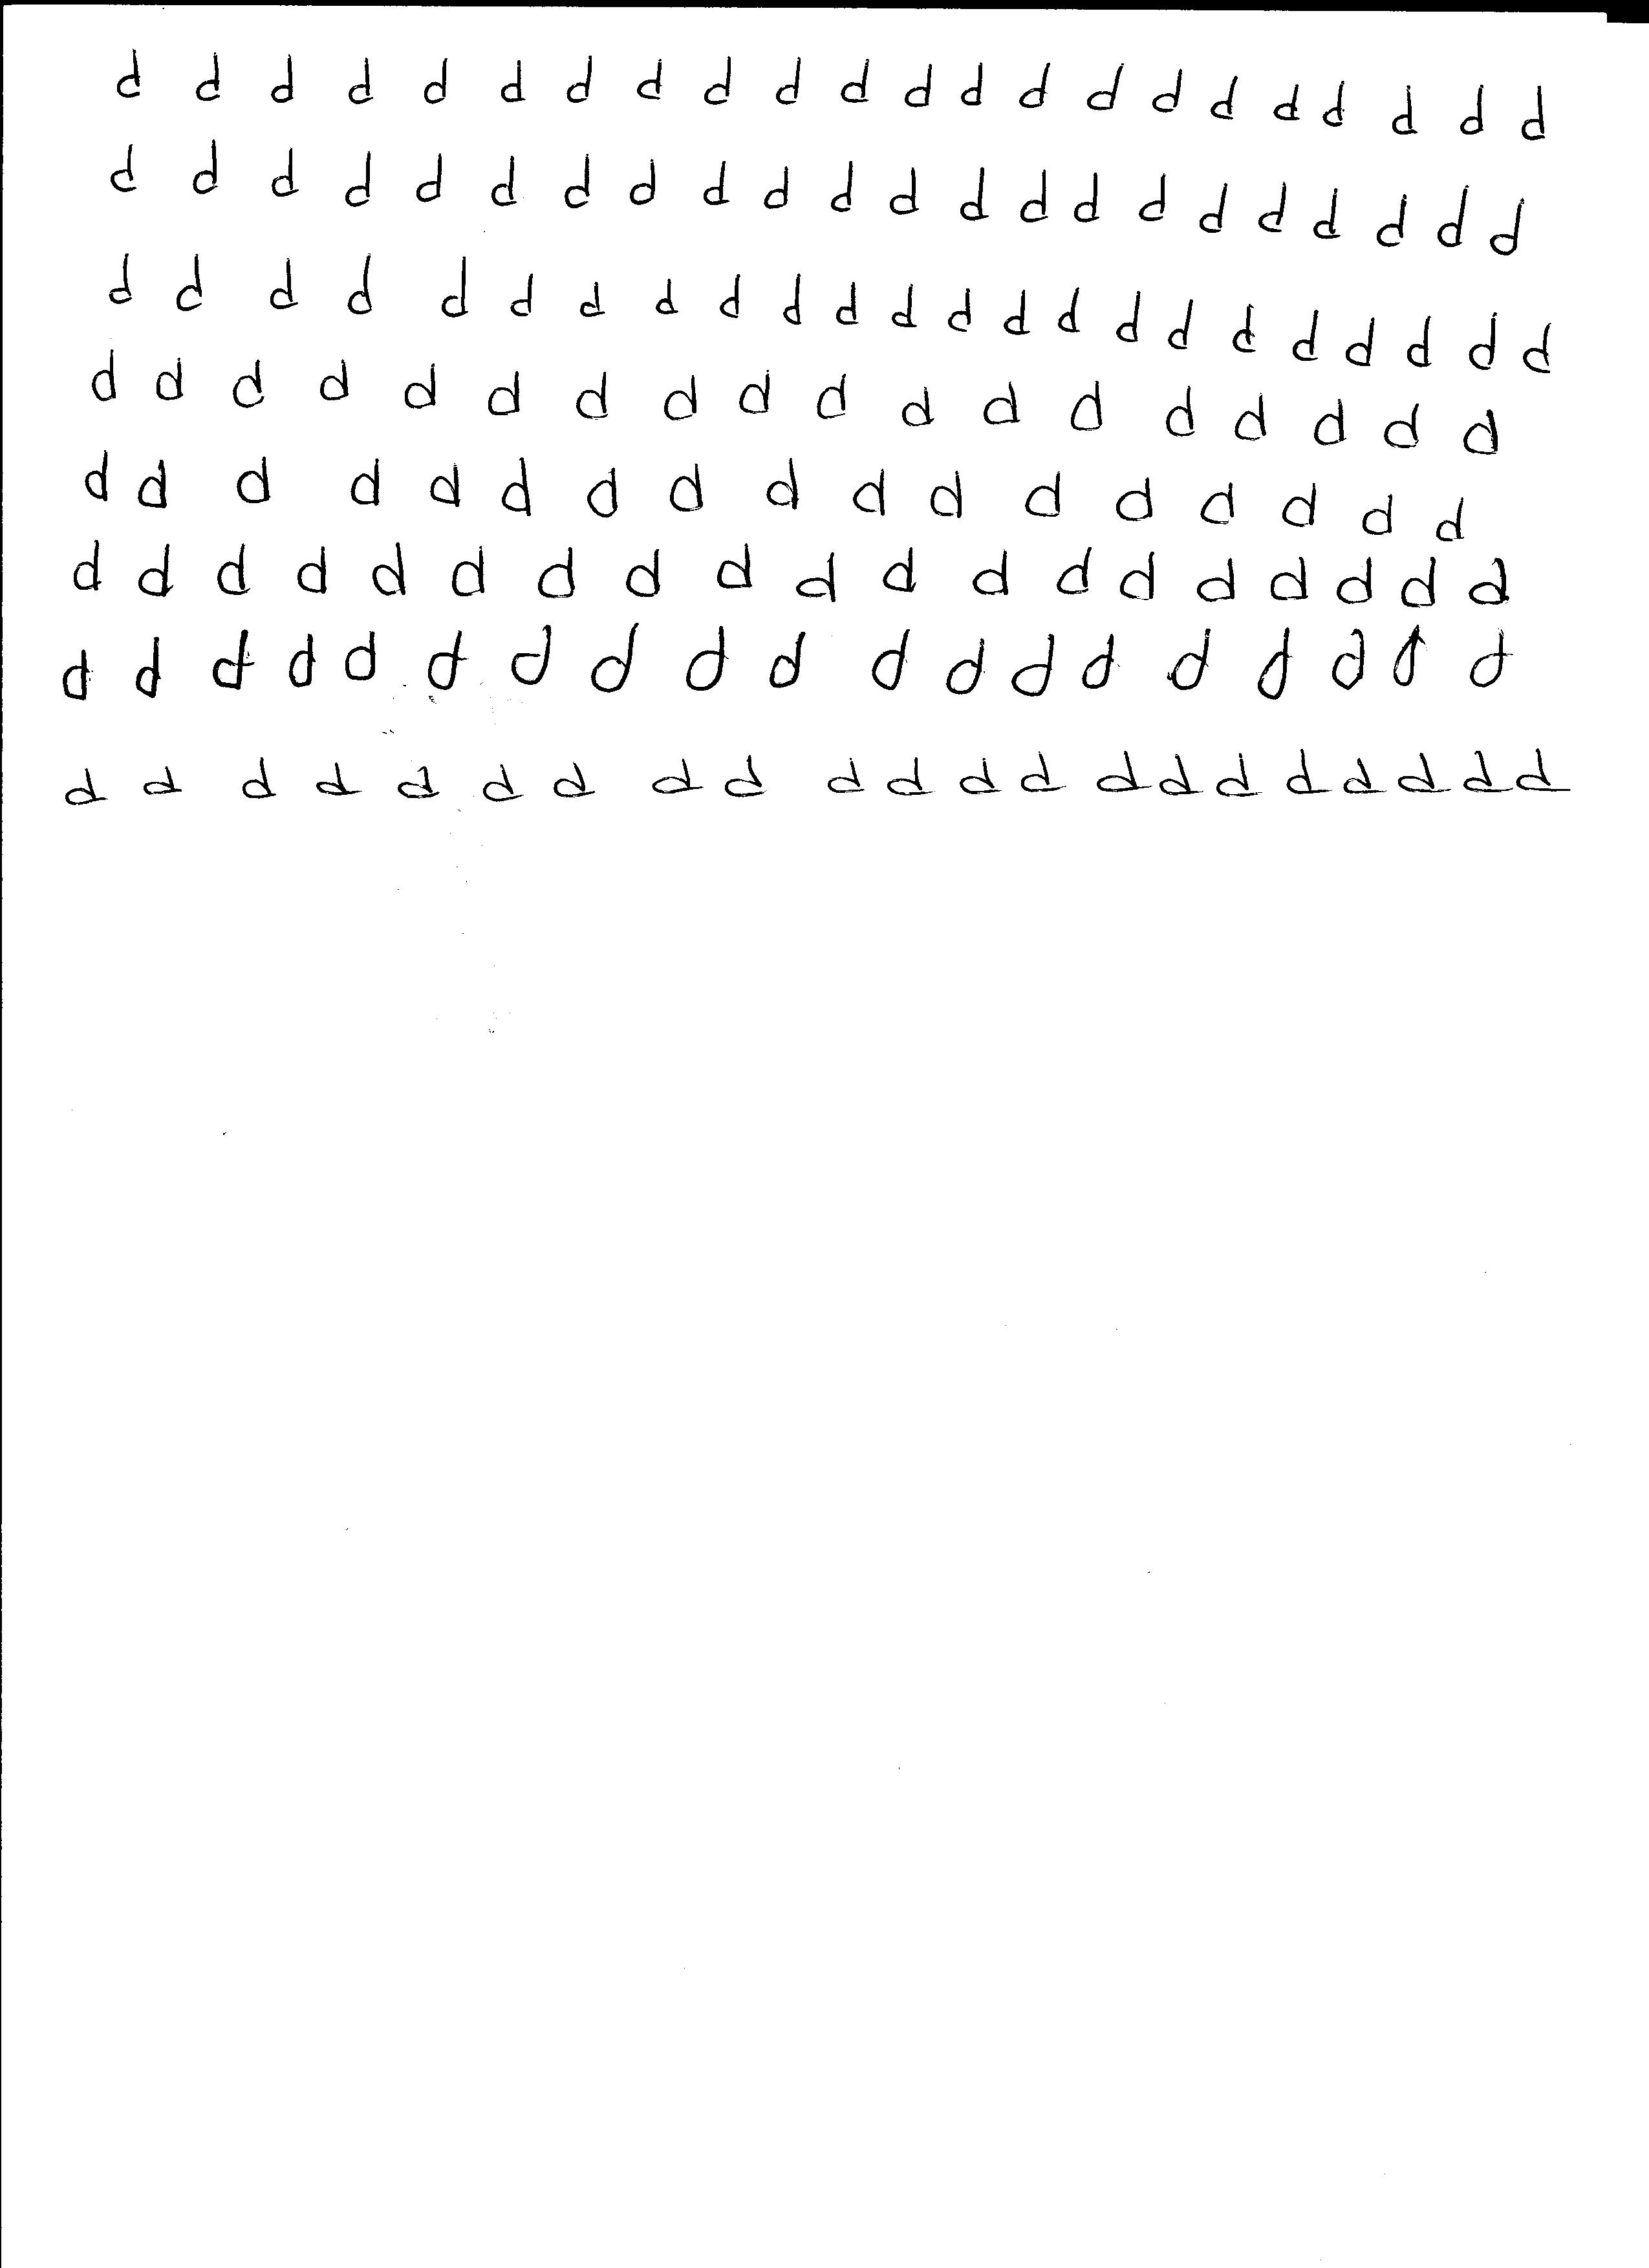 d d d d d d d d d d d d d d d d d d d d d d
d d d d d d d d d d d d d d d d d d d d d d
d d d d d d d d d d d d d d d d d d d d d d d
d d d d d d d d d d d d d d d d d d
d d d d d d d d d d d d d d d d d
d d d d d d d d d d d d d d d d d d d
d d d d d d d d d d d d d d d d d d d
d d d d d d d d d d d d d d d d d d d d d